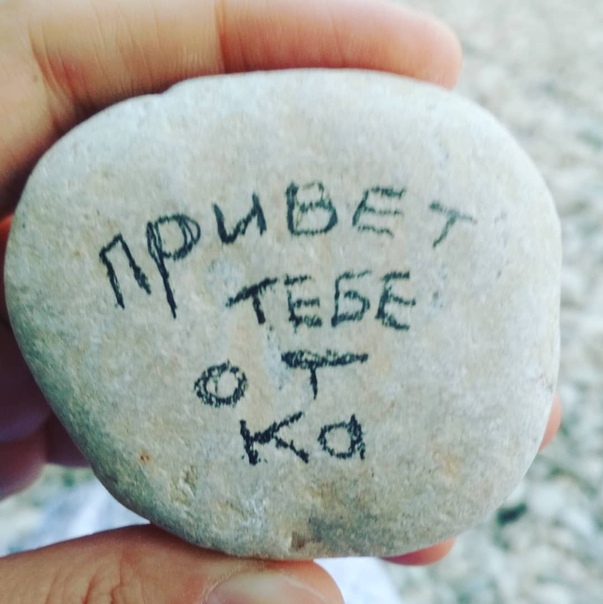 ПРИВЕТ
ТЕБЕ
ОТ
Ка